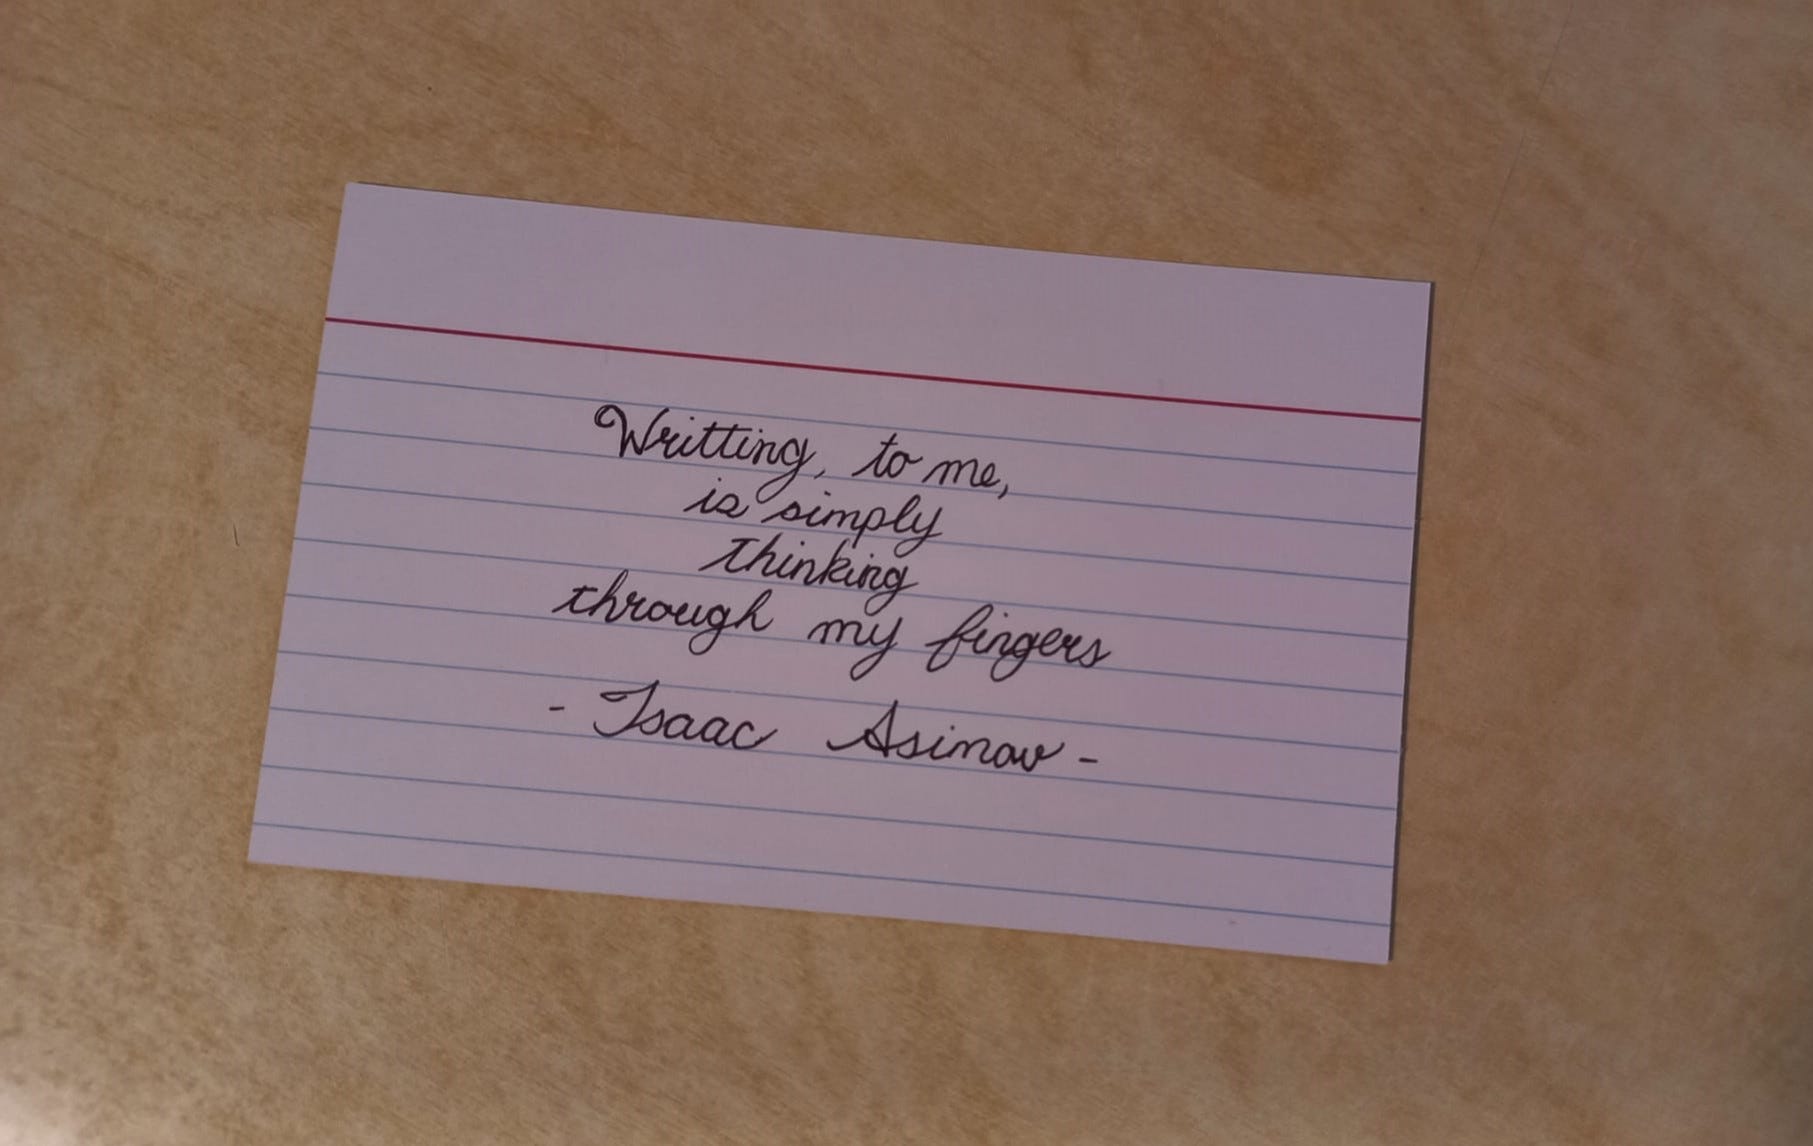 Writting, to me,
is simply
thinking
through my fingers
- Isaac Asimov -